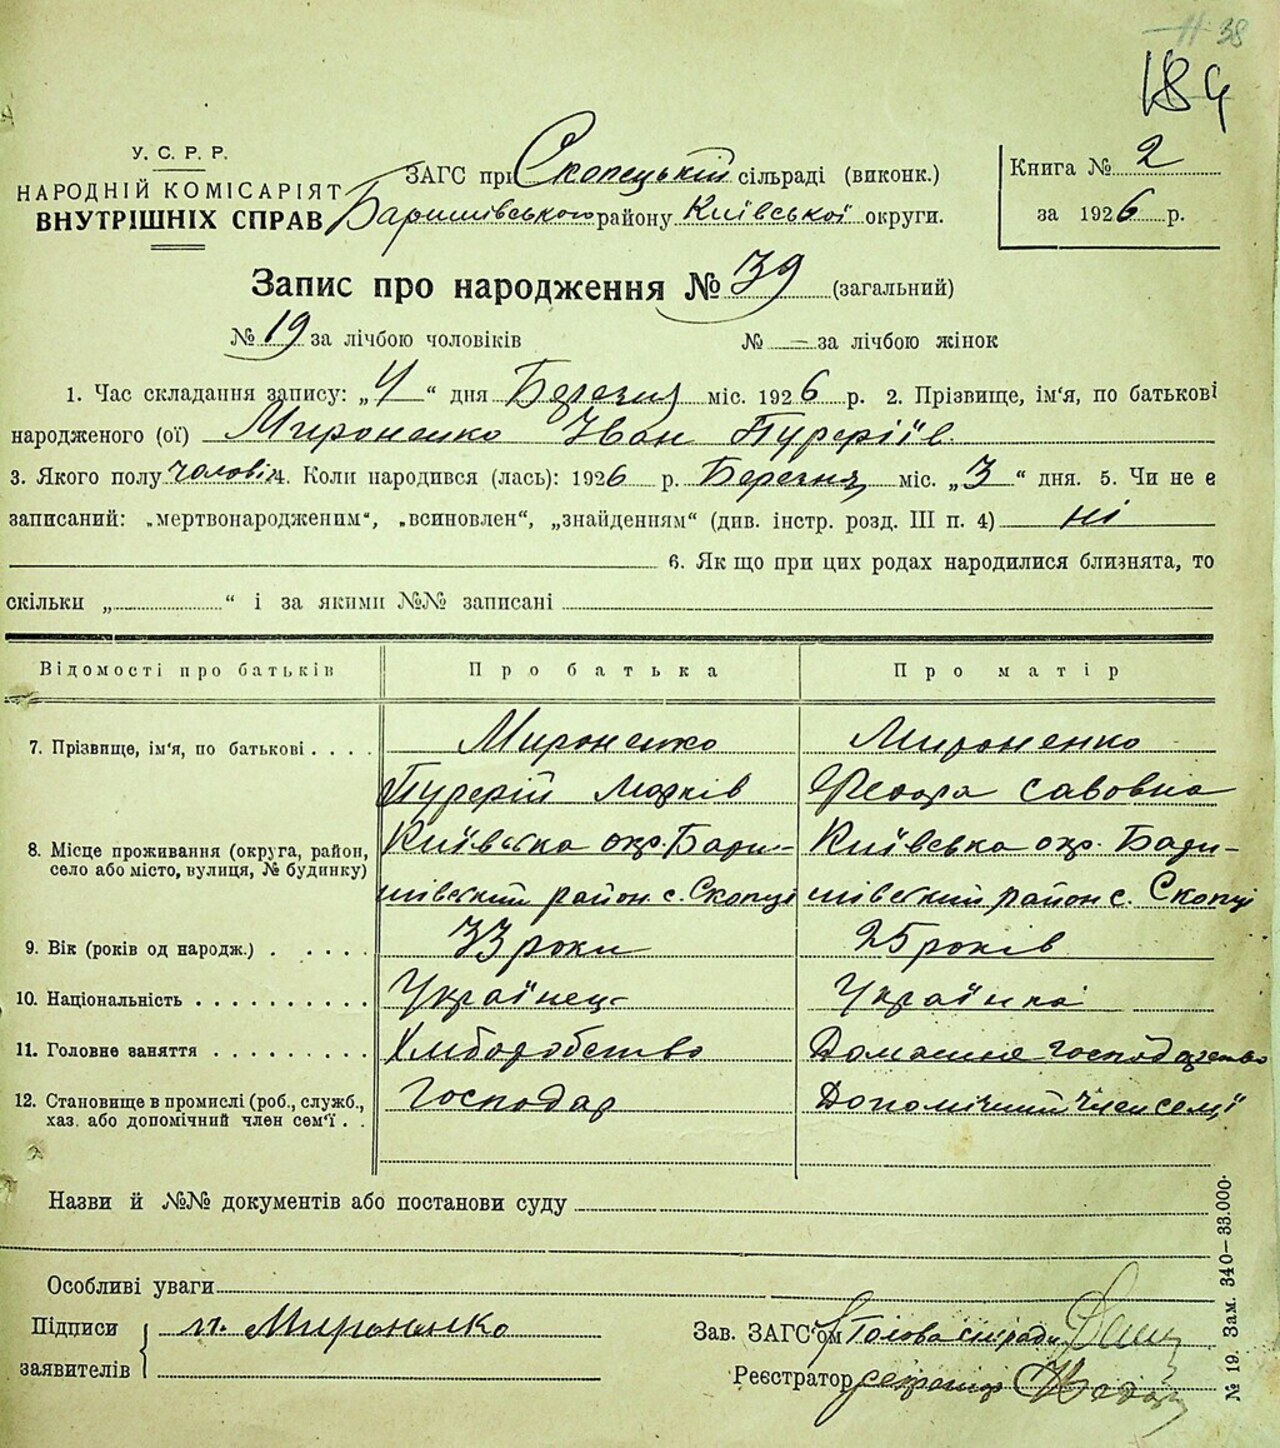 38
184
У. С. Р. Р.
НАРОДНІЙ КОМІСАРІЯТ
ВНУТРІШНІХ СПРАВ
ЗАГС при Скопецькій сільраді (виконк.)
Баришівського району Київської округи.
Книга № 2
за 1926 р.
Запис про народження № 39 (загальний)
№ 19 за лічбою чоловіків № — за лічбою жінок
1. Час складання запису: „4“ дня Березня міс. 1926 р. 2. Прізвище, ім'я, по батькові
народженого (ої) Мироненко Іван Пурфіїв.
3. Якого полу чоловік 4. Коли народився (лась): 1926 р. Березня міс. „3“ дня. 5. Чи не є
записаний: „мертвонародженим“, „всиновлен“, „знайденням“ (див. інстр. розд. III п. 4) ні
6. Як що при цих родах народилися близнята, то
скільки „ “ і за якими №№ записані
Відомості про батьків Про батька Про матір
7. Прізвище, ім'я, по батькові . . . . Мироненко Мироненко
Пурфій Марків Федора Савовна
8. Місце проживання (округа, район, село або місто, вулиця, № будинку) Київська окр. Бари- Київська окр. Бари-
шівський район с. Скопці шівський район с. Скопці
9. Вік (років од народж.) . . . . . 33 роки 25 років
10. Національність . . . . . . . . . . Українец Українка
11. Головне заняття . . . . . . . . . Хліборобство Домашнє господарство
12. Становище в промислі (роб., служб., хаз. або допомічний член сем'ї . . Господар Допомічний член семї
Назви й №№ документів або постанови суду
Особливі уваги
Підписи
заявителів
п. Мироненко
Зав. ЗАГС'ом Голова сільради
Реєстратор секретар
№ 19. Зам. 340—33.000.